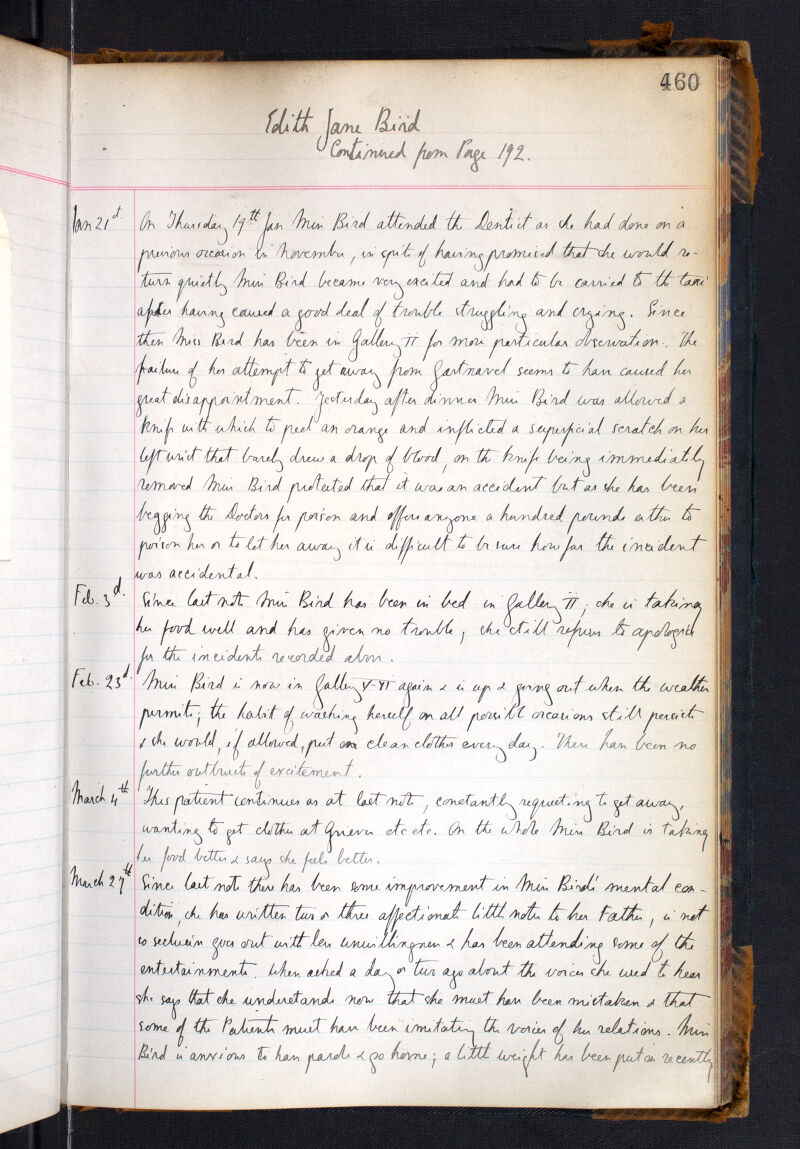 460
Edith Jane Bird
Continued from Page 192.
Jan 21st. On Thursday 19th Jan Miss Bird attended the Dentist as she had done on a
previous occasion in November, in spite of having promised that she would re-
turn quietly Miss Bird became very excited and had to be carried to the taxi
after having caused a good deal of trouble struggling and crying. Since
then Miss Bird has been in Gallery II for more particular observation. The
failure of her attempt to get away from Gartnavel seems to have caused her
great disappointment. Yesterday after dinner Miss Bird was allowed a
knife with which to peel an orange and inflicted a superficial scratch on her
left wrist that barely drew a drop of blood, on the knife being immediately
removed Miss Bird protested that it was an accident but as she has been
begging the Doctors for poison and offers anyone a hundred pounds either to
poison her or to let her away it is difficult to be sure how far the incident
was accidental.
Feb. 3d. Since last note Miss Bird has been in bed in Gallery II; she is taking
her food well and has given no trouble, she still refuses to apologise
for the incidents recorded above.
Feb. 23d. Miss Bird is now in Gallery V-VI again & is up & going out when the weather
permits; the habit of washing herself on all possible occasions still persists
& she would, if allowed, put on clean clothes every day. There has been no
further outbursts of excitement.
March 4th This patient continues as at last note, constantly requesting to get away,
wanting to get clothes at etc etc. On the whole Miss Bird is taking
her food better & says she feels better.
March 27th Since last note there has been some improvement in Miss Bird's mental con-
dition, she has written two or three affectionate little notes to her Father, is not
so seclusive goes out with less unwillingness & has been attending some of the
entertainments. When asked a day or two ago about the voices she used to hear
she says that she understands now that she must have been mistaken & that
some of the Patients must have been imitating the voices of her relations. Miss
Bird is anxious to have parole & go home; a little weight has been put on recently